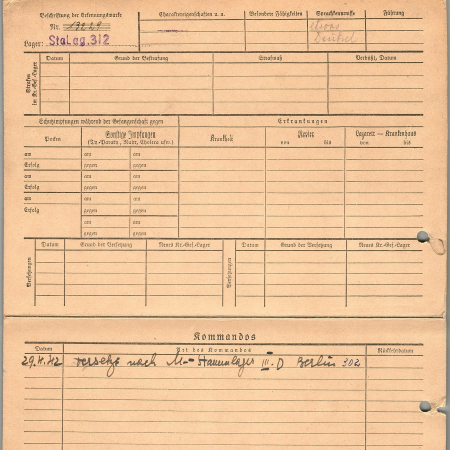 Beschriftung der Erkennungsmarke
Charaktereigenschaften u. a.
Besondere Fähigkeiten
Sprachkenntnisse
Führung
Nr.
Lager: Stalag 312
Deutsch
Strafen im Kr.-Gef.-Lager
Datum
Grund der Bestrafung
Strafmaß
Verbüßt, Datum
Schutzimpfungen während der Gefangenschaft gegen
Erkrankungen
Pocken
Sonstige Impfungen
(Ty.-Paraty., Ruhr, Cholera usw.)
Krankheit
Revier
von bis
Lazarett — Krankenhaus
von bis
am am
Erfolg gegen
am am
Erfolg gegen
am am
Erfolg gegen
am
gegen
Versetzungen
Datum
Grund der Versetzung
Neues Kr.-Gef.-Lager
Versetzungen
Datum
Grund der Versetzung
Neues Kr.-Gef.-Lager
Kommandos
Datum
Art des Kommandos
Rückkehrdatum
versetzt nach M-Stammlager III D Berlin 302